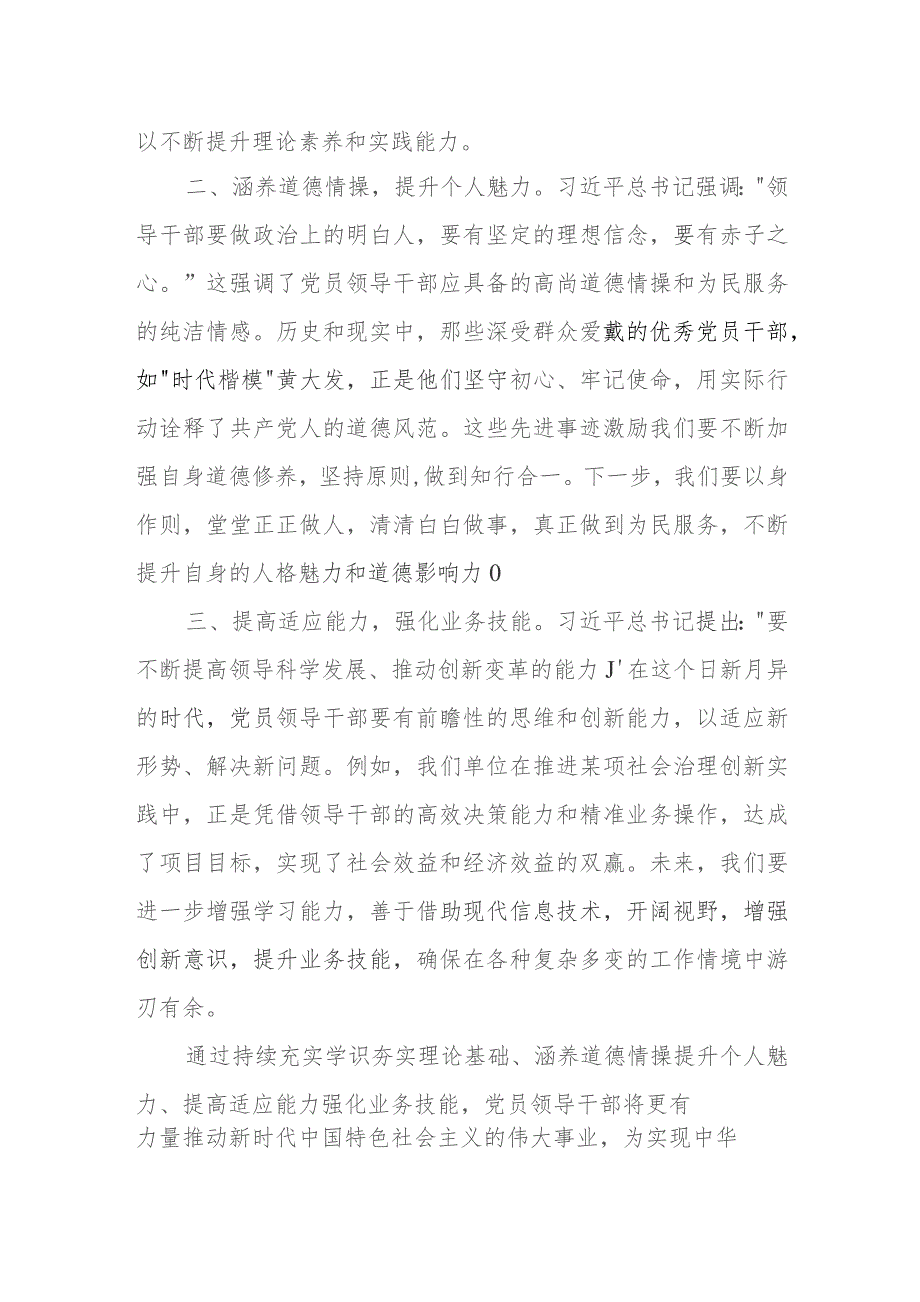 以不断提升理论素养和实践能力。
二、涵养道德情操，提升个人魅力。习近平总书记强调："领
导干部要做政治上的明白人，要有坚定的理想信念，要有赤子之
心。”这强调了党员领导干部应具备的高尚道德情操和为民服务
的纯洁情感。历史和现实中，那些深受群众爱戴的优秀党员干部，
如"时代楷模"黄大发，正是他们坚守初心、牢记使命，用实际行
动诠释了共产党人的道德风范。这些先进事迹激励我们要不断加
强自身道德修养，坚持原则,做到知行合一。下一步，我们要以身
作则，堂堂正正做人，清清白白做事，真正做到为民服务，不断
提升自身的人格魅力和道德影响力0
三、提高适应能力，强化业务技能。习近平总书记提出："要
不断提高领导科学发展、推动创新变革的能力J'在这个日新月异
的时代，党员领导干部要有前瞻性的思维和创新能力，以适应新
形势、解决新问题。例如，我们单位在推进某项社会治理创新实
践中，正是凭借领导干部的高效决策能力和精准业务操作，达成
了项目目标，实现了社会效益和经济效益的双赢。未来，我们要
进一步增强学习能力，善于借助现代信息技术，开阔视野，增强
创新意识，提升业务技能，确保在各种复杂多变的工作情境中游
刃有余。
通过持续充实学识夯实理论基础、涵养道德情操提升个人魅
力、提高适应能力强化业务技能，党员领导干部将更有
力量推动新时代中国特色社会主义的伟大事业，为实现中华